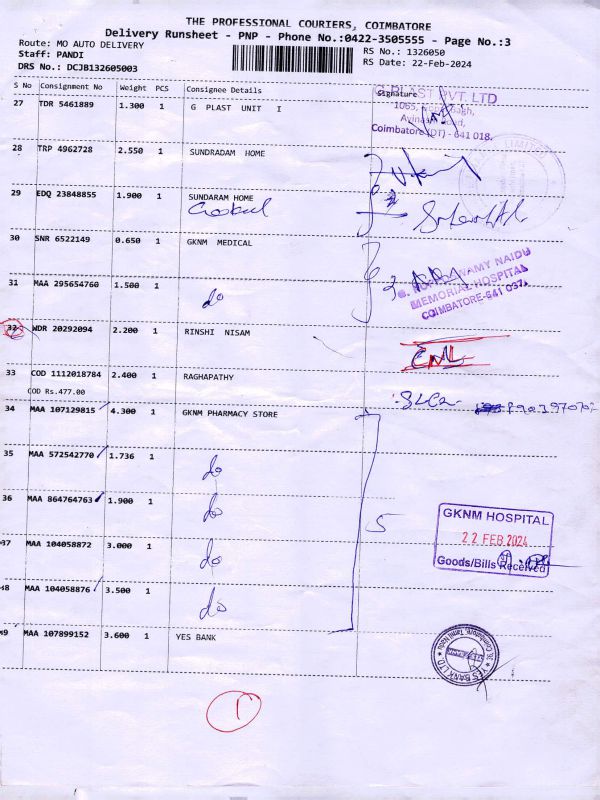 THE PROFESSIONAL COURIERS, COIMBATORE
Delivery Runsheet - PNP - Phone No.:0422-3505555 - Page No.:3
Route: MO AUTO DELIVERY
Staff: PANDI
DRS No.: DCJB132605003
RS No.: 1326050
RS Date: 22-Feb-2024
S No Consignment No Weight PCS Consignee Details Signature
27 TDR 5461889 1.300 1 G PLAST UNIT I
G PLAST PVT. LTD
1065,
Coimbatore (DT) - 641 018.
28 TRP 4962728 2.550 1 SUNDRADAM HOME
LIMITED
29 EDQ 23848855 1.900 1 SUNDARAM HOME
30 SNR 6522149 0.650 1 GKNM MEDICAL
31 MAA 295654760 1.500 1 do
NAMY NAIDU
MEMORIAL HOSPITAL
COIMBATORE-641 037.
32 WDR 20292094 2.200 1 RINSHI NISAM
33 COD 1112018784 2.400 1 RAGHAPATHY
COD Rs.477.00
34 MAA 107129815 4.300 1 GKNM PHARMACY STORE
35 MAA 572542770 1.736 1 do
36 MAA 864764763 1.900 1 do
37 MAA 104058872 3.000 1 do
48 MAA 104058876 3.500 1 do
5
GKNM HOSPITAL
22 FEB 2024
Goods/Bills Received
49 MAA 107899152 3.600 1 YES BANK
YES BANK LTD
Coimbatore, Tamil Nadu
1